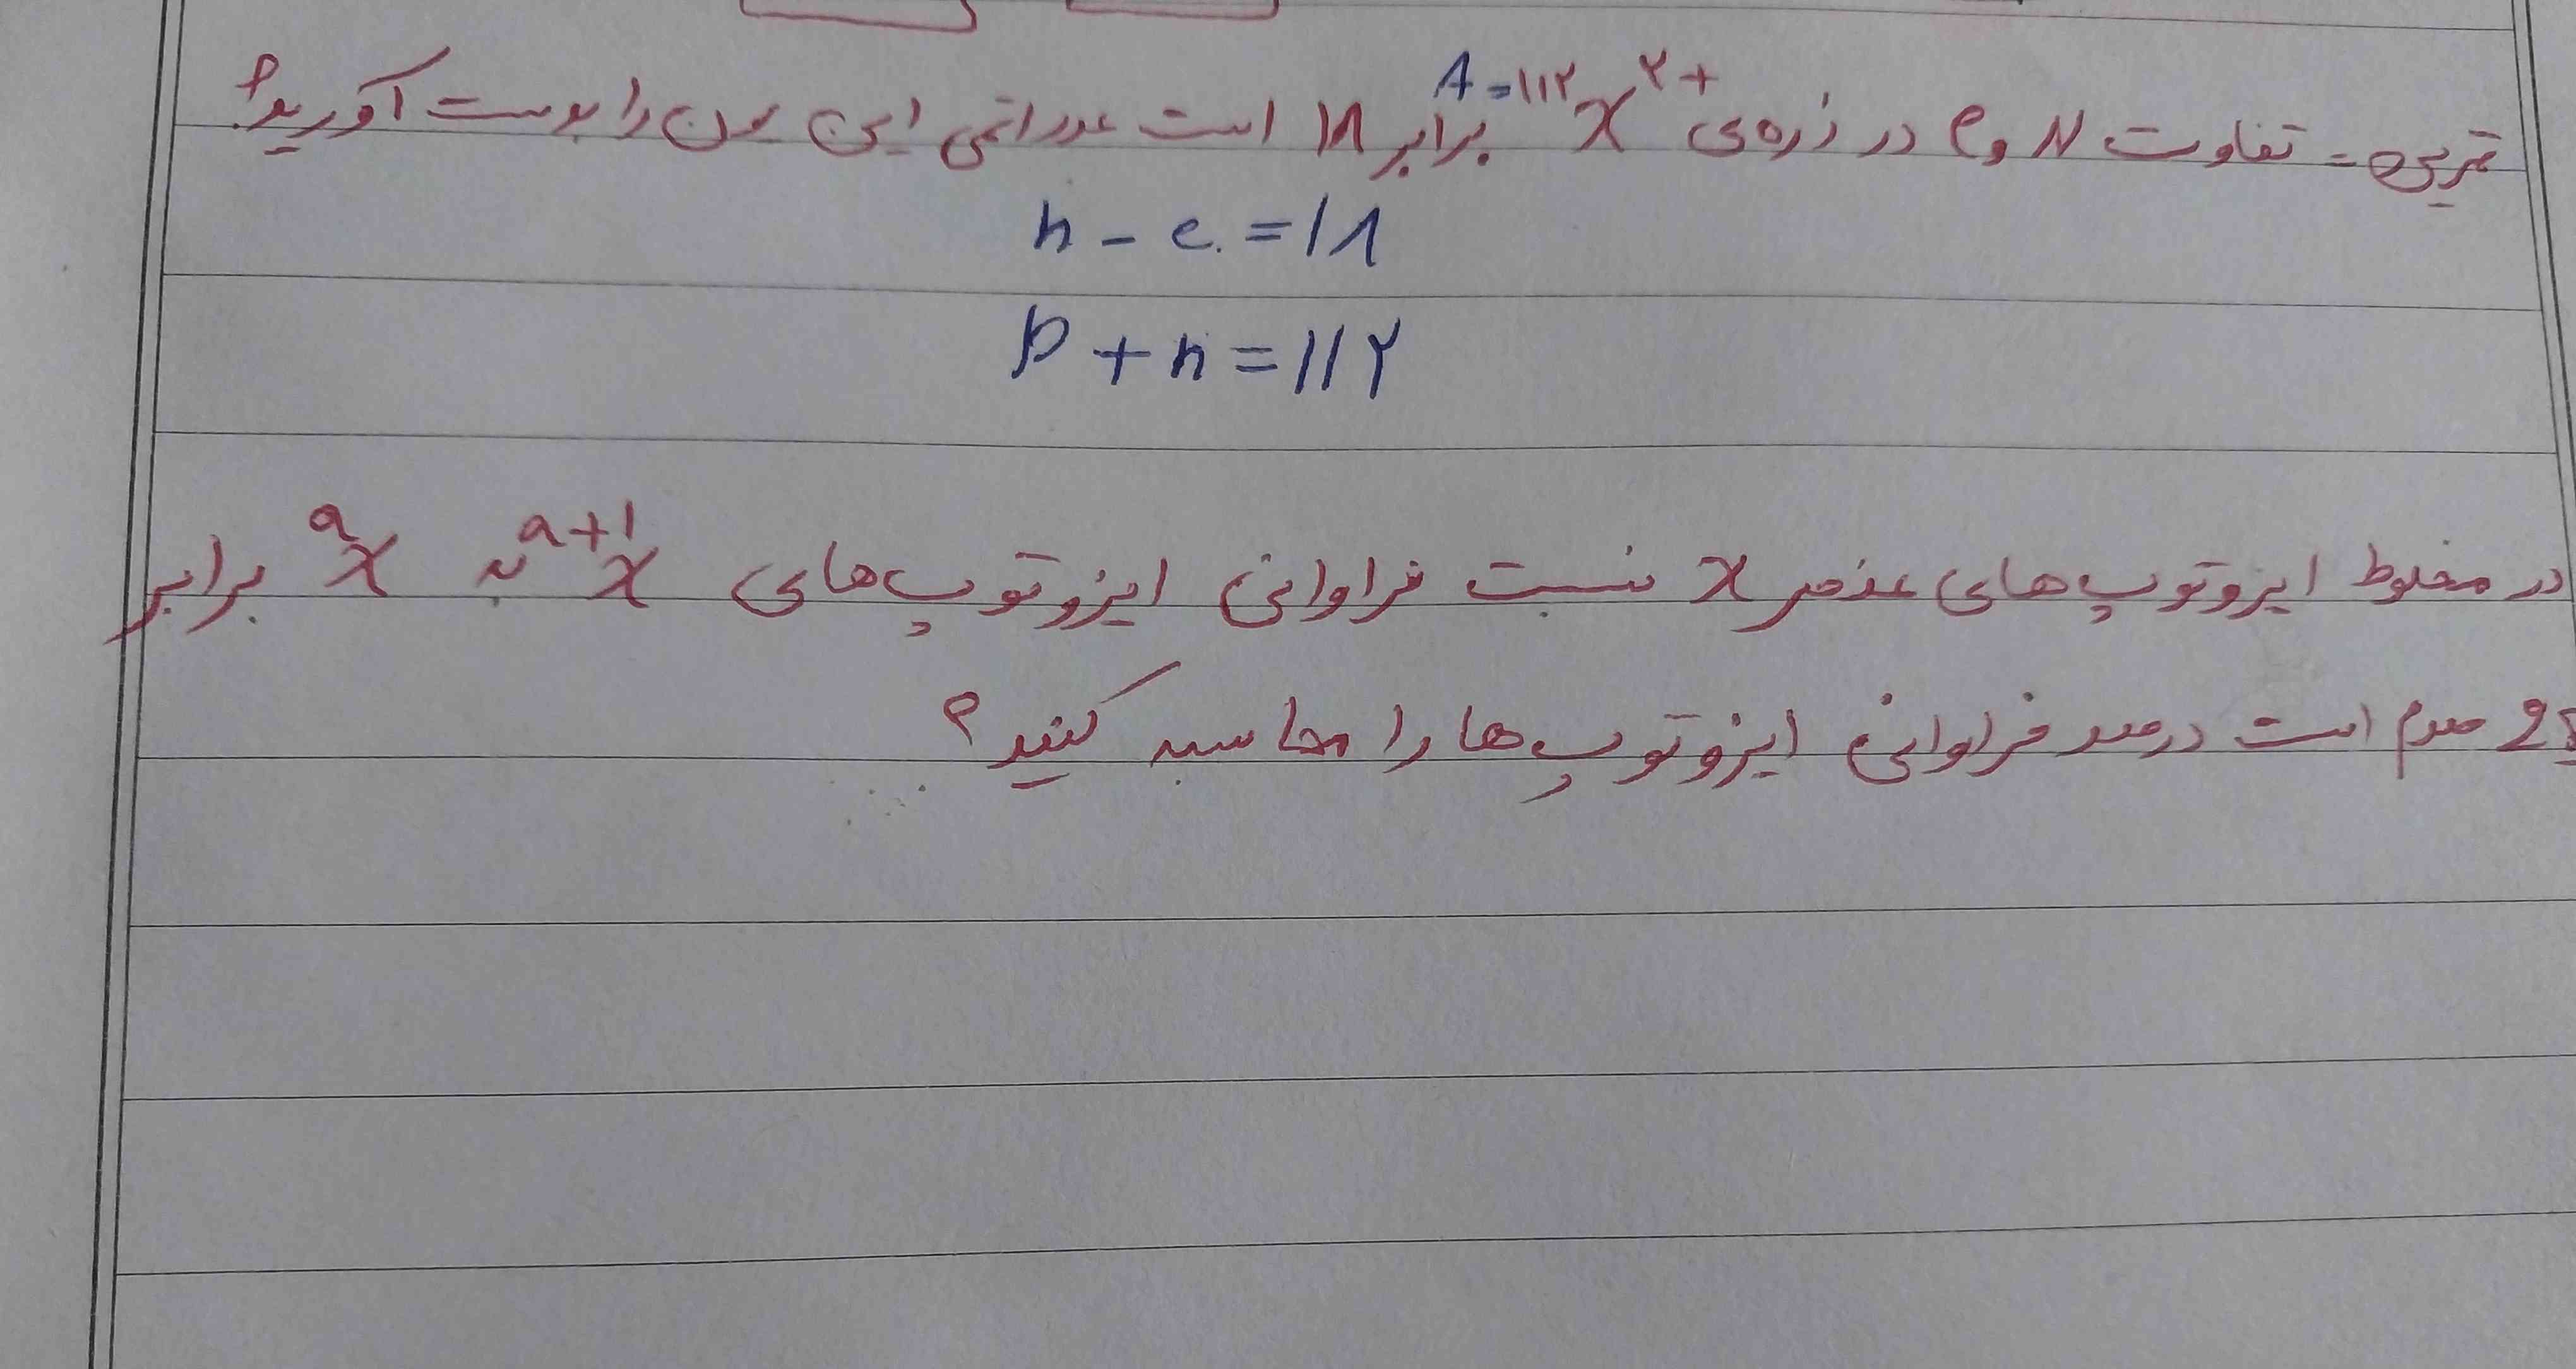 تمرین = تفاوت N و e در ذره‌ی A=۱۱۲X۲+ برابر ۱۸ است عدد اتمی این یون را بدست آورید؟
n - e = ۱۸
p + n = ۱۱۲
در مخلوط ایزوتوپ‌های عنصر X نسبت فراوانی ایزوتوپ‌های a+1X به aX برابر
صدم است درصد فراوانی ایزوتوپ‌ها را محاسبه کنید؟